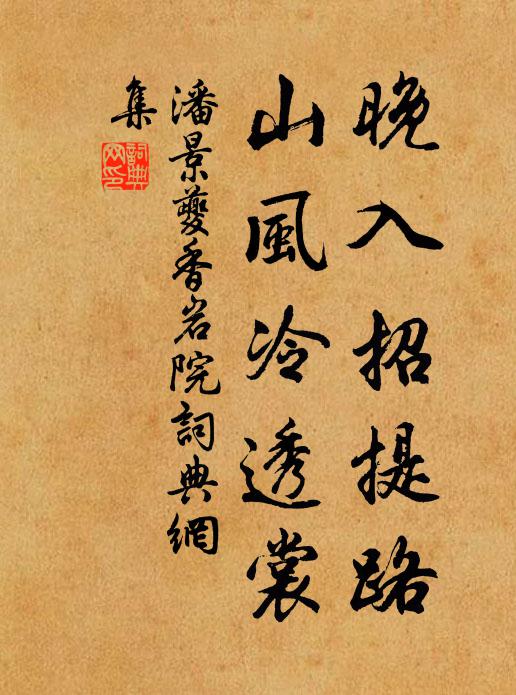 晚入招提路
山風冷透裳
潘景夔香岩院詞典網
集
詞典
网印